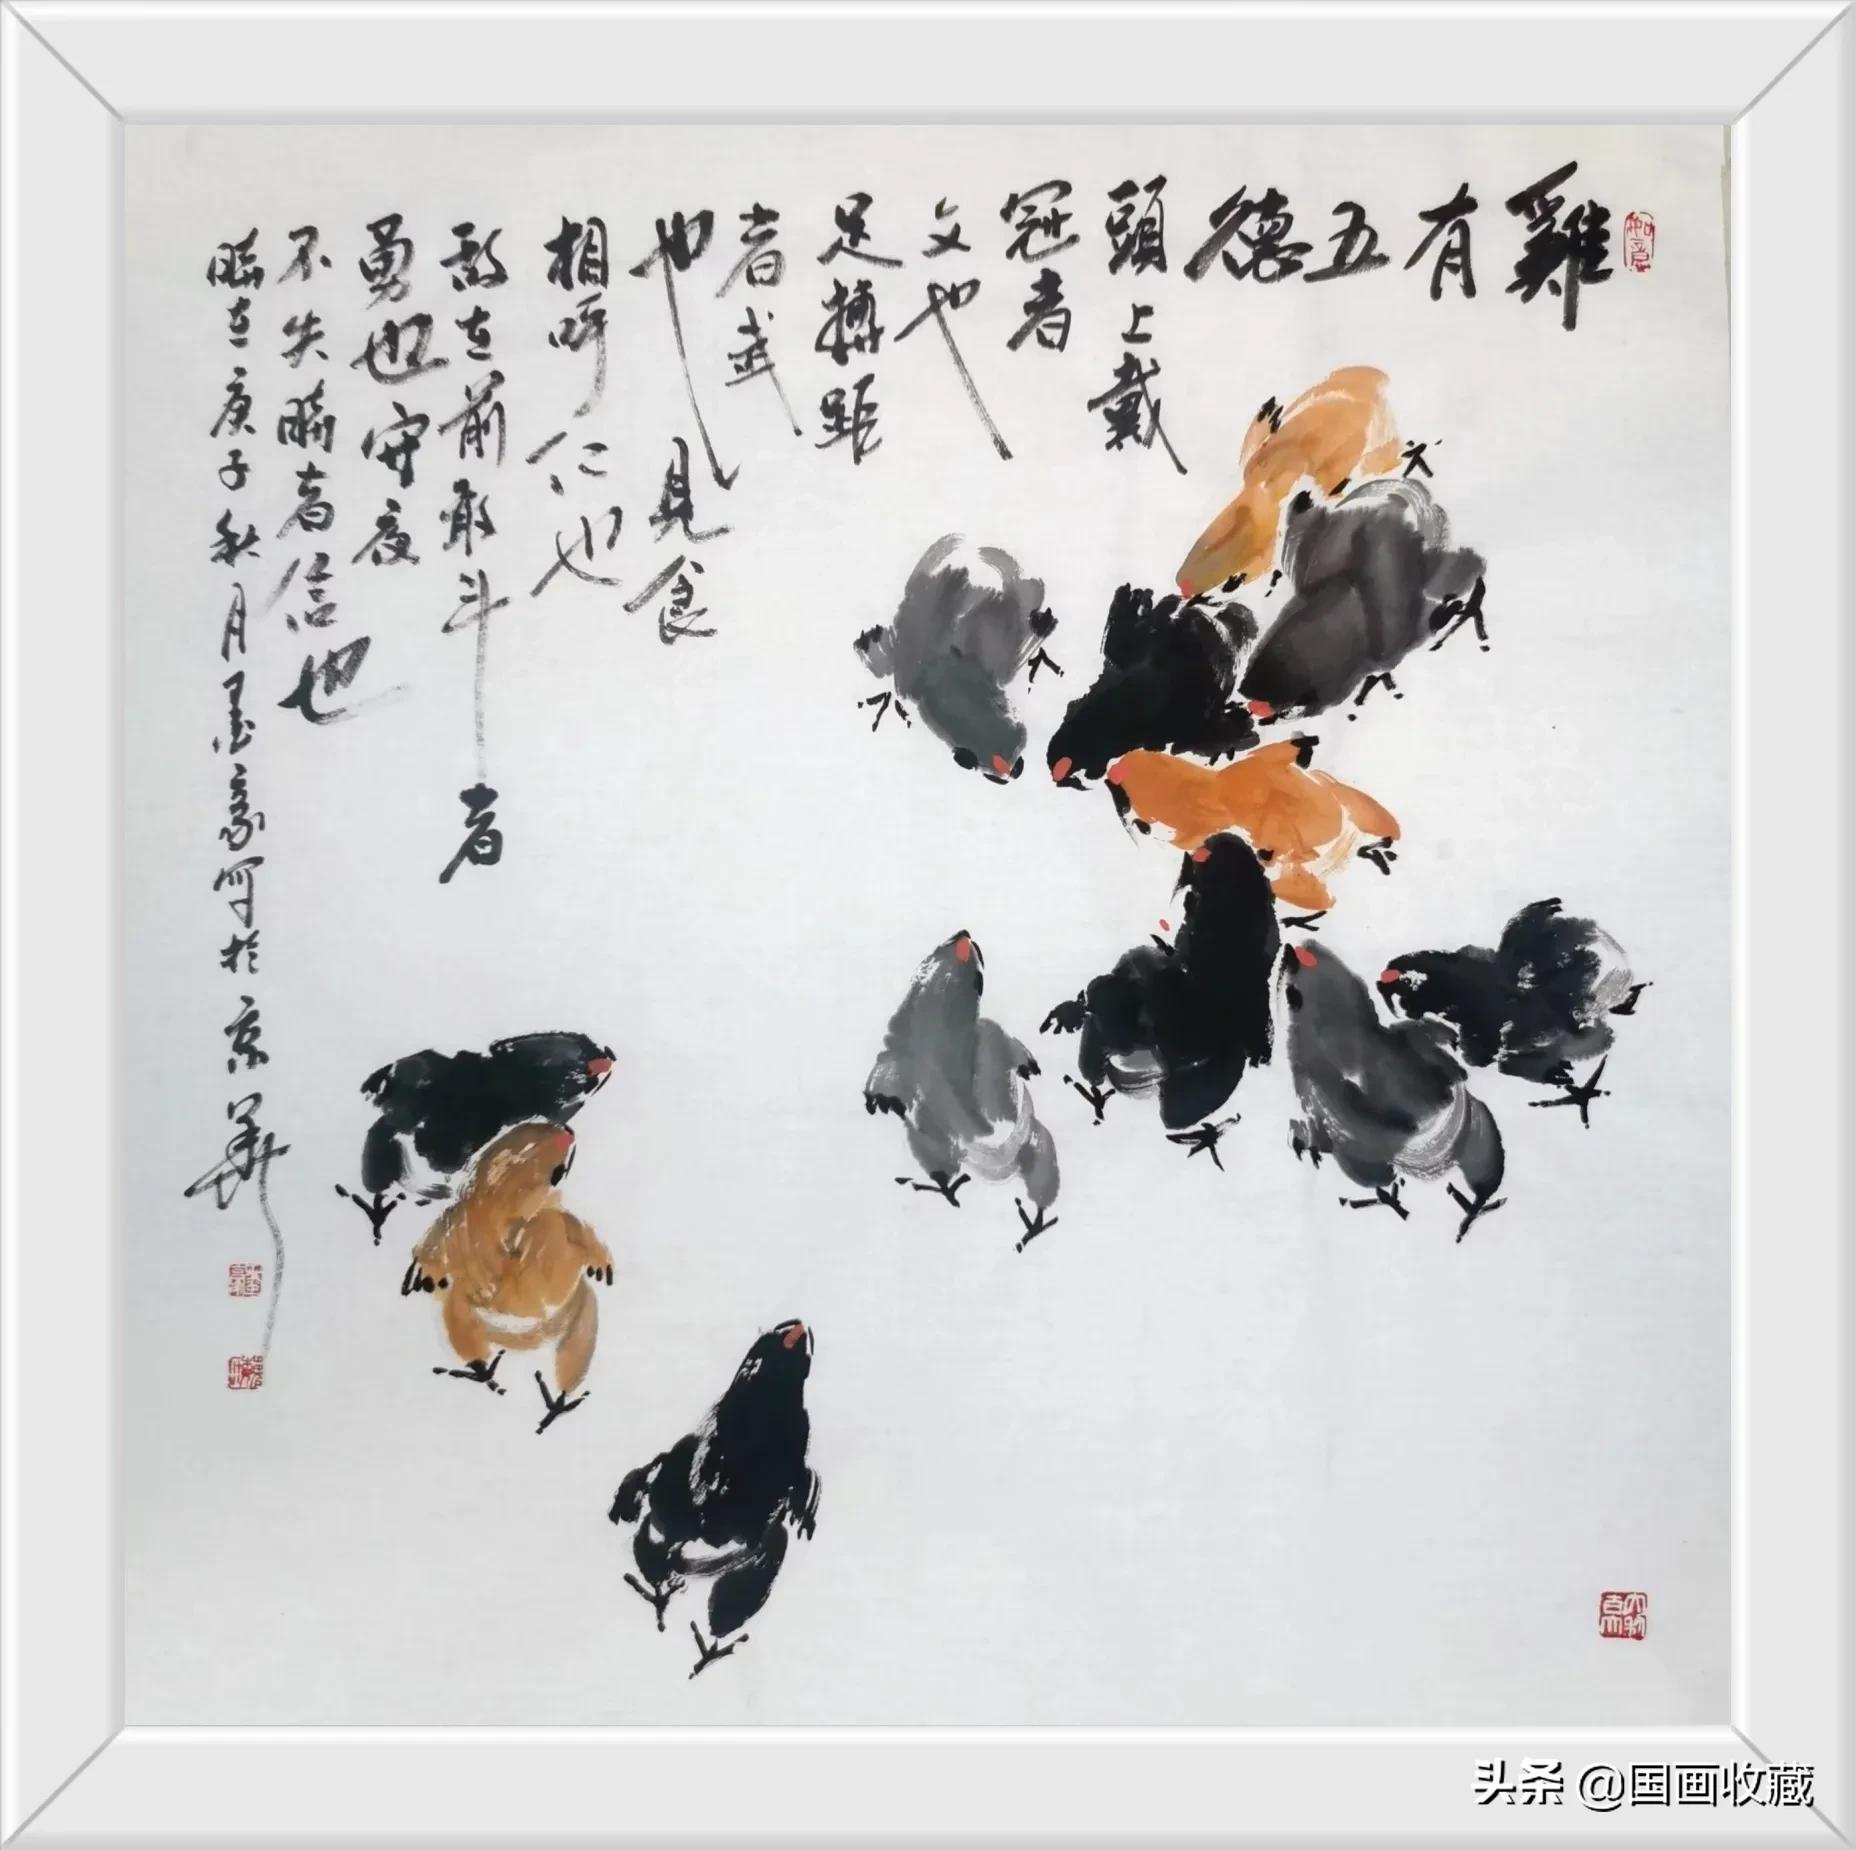 雞
有
五
德
頭上戴
冠者
文也
足搏距
者武
也見食
相呼仁也
敌在前敢斗者
勇也守夜
不失時者信也
時在庚子秋月墨豪写於京華
如意
头条 @国画收藏